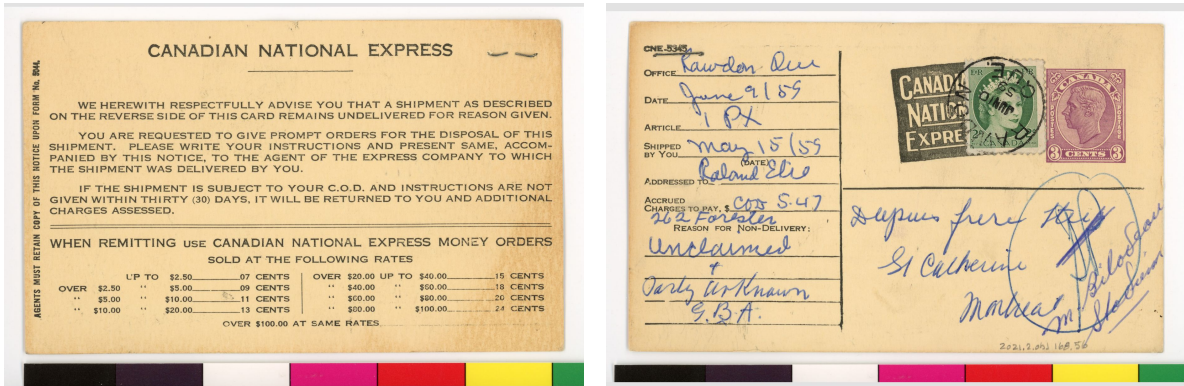 CANADIAN NATIONAL EXPRESS
WE HEREWITH RESPECTFULLY ADVISE YOU THAT A SHIPMENT AS DESCRIBED
ON THE REVERSE SIDE OF THIS CARD REMAINS UNDELIVERED FOR REASON GIVEN.
YOU ARE REQUESTED TO GIVE PROMPT ORDERS FOR THE DISPOSAL OF THIS
SHIPMENT. PLEASE WRITE YOUR INSTRUCTIONS AND PRESENT SAME, ACCOM-
PANIED BY THIS NOTICE, TO THE AGENT OF THE EXPRESS COMPANY TO WHICH
THE SHIPMENT WAS DELIVERED BY YOU.
IF THE SHIPMENT IS SUBJECT TO YOUR C.O.D. AND INSTRUCTIONS ARE NOT
GIVEN WITHIN THIRTY (30) DAYS, IT WILL BE RETURNED TO YOU AND ADDITIONAL
CHARGES ASSESSED.
WHEN REMITTING USE CANADIAN NATIONAL EXPRESS MONEY ORDERS
SOLD AT THE FOLLOWING RATES
UP TO $2.50 .07 CENTS OVER $20.00 UP TO $40.00 15 CENTS
OVER $2.50 " $5.00 .09 CENTS " $40.00 " $60.00 18 CENTS
" $5.00 " $10.00 11 CENTS " $60.00 " $80.00 20 CENTS
" $10.00 " $20.00 13 CENTS " $80.00 " $100.00 24 CENTS
OVER $100.00 AT SAME RATES
AGENTS MUST RETAIN COPY OF THIS NOTICE UPON FORM No. 5044.
CNE-5345
OFFICE Rawdon Que
DATE June 9/59
ARTICLE 1 PX
SHIPPED BY YOU May 15/59
(DATE)
ADDRESSED TO Roland Elie
ACCRUED
CHARGES TO PAY, $ COD 5.47
262 Forester
REASON FOR NON-DELIVERY:
Unclaimed
+
Party Unknown
G.B.A.
CANAD
NATIO
EXPRE
CANADA
3 CENTS 3
Dupuis frere
St Catherine
Montreal
2021.2.ph 168.56